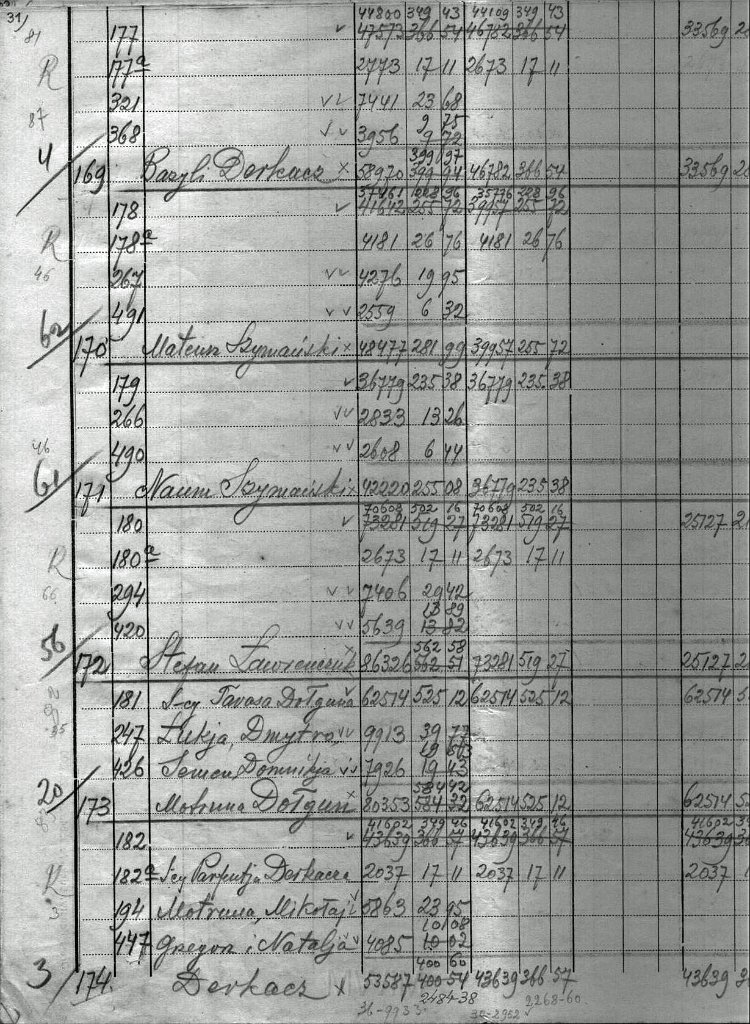 31/ 44800 349 43 44109 349 43
81 177 v 47573 366 54 46782 366 54 33569
R 177a 2773 17 11 2673 17 11
321 v v 7441 23 68
87 9 75
368 v v 3956 9 72
399 97
4/ 169 Bazyli Derkacz x 58970 399 94 46782 366 54 33569
96 96
178 v 41642 255 72 39957 255 72
R 178a 4181 26 76 4181 26 76
46 267 v v 4276 19 95
491 v v 2559 6 32
62/ 170 Mateusz Szymański x 48477 281 99 39957 255 72
179 v 36779 235 38 36779 235 38
266 v v 2833 13 26
46 490 v v 2608 6 44
61/ 171 Naum Szymański x 42220 255 08 36779 235 38
70608 502 16 70608 502 16
180 v 73281 519 27 73281 519 27 25127
R 180a 2673 17 11 2673 17 11
66 294 v v 7406 29 42
13 89
420 v v 5639 13 82
562 58
56/ 172 Stefan Ławrenczuk x 86326 562 51 73281 519 27 25127
181 S-cy Tarasa Dołguna v 62514 525 12 62514 525 12 62514
247 Łukja, Dmytro, v v 9913 39 77
426 Semen, Domnikja v v 7926 19 43
584 42
20/ 173 Motruna Dołgun x 80353 584 32 62514 525 12 62514
41602 349 46 41602 349 46 41602
182 v 43639 366 57 43639 366 57 43639
R 182a S-cy Parfentja Derkacza 2037 17 11 2037 17 11 2037
3 194 Motruna, Mikołaj 5863 23 95
10 08
447 Gregor i Natalja v 4085 10 02
400 60
3/ 174. Derkacz x 53587 400 54 43639 366 57 43639
2484-38 2268-60